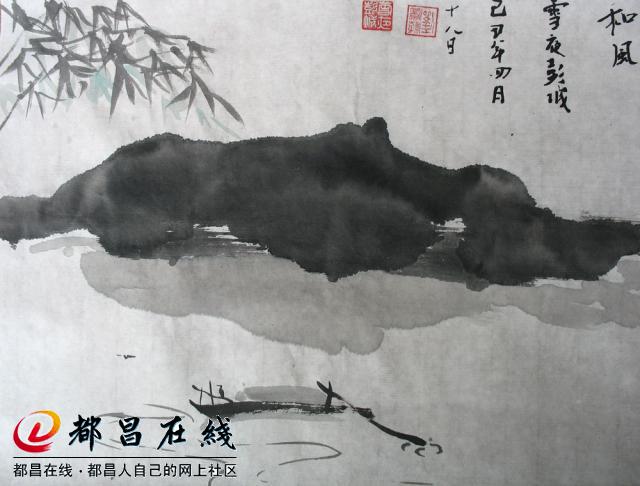 和风
雪夜彭城
己丑年四月
十八日
都昌在线
都昌在线·都昌人自己的网上社区